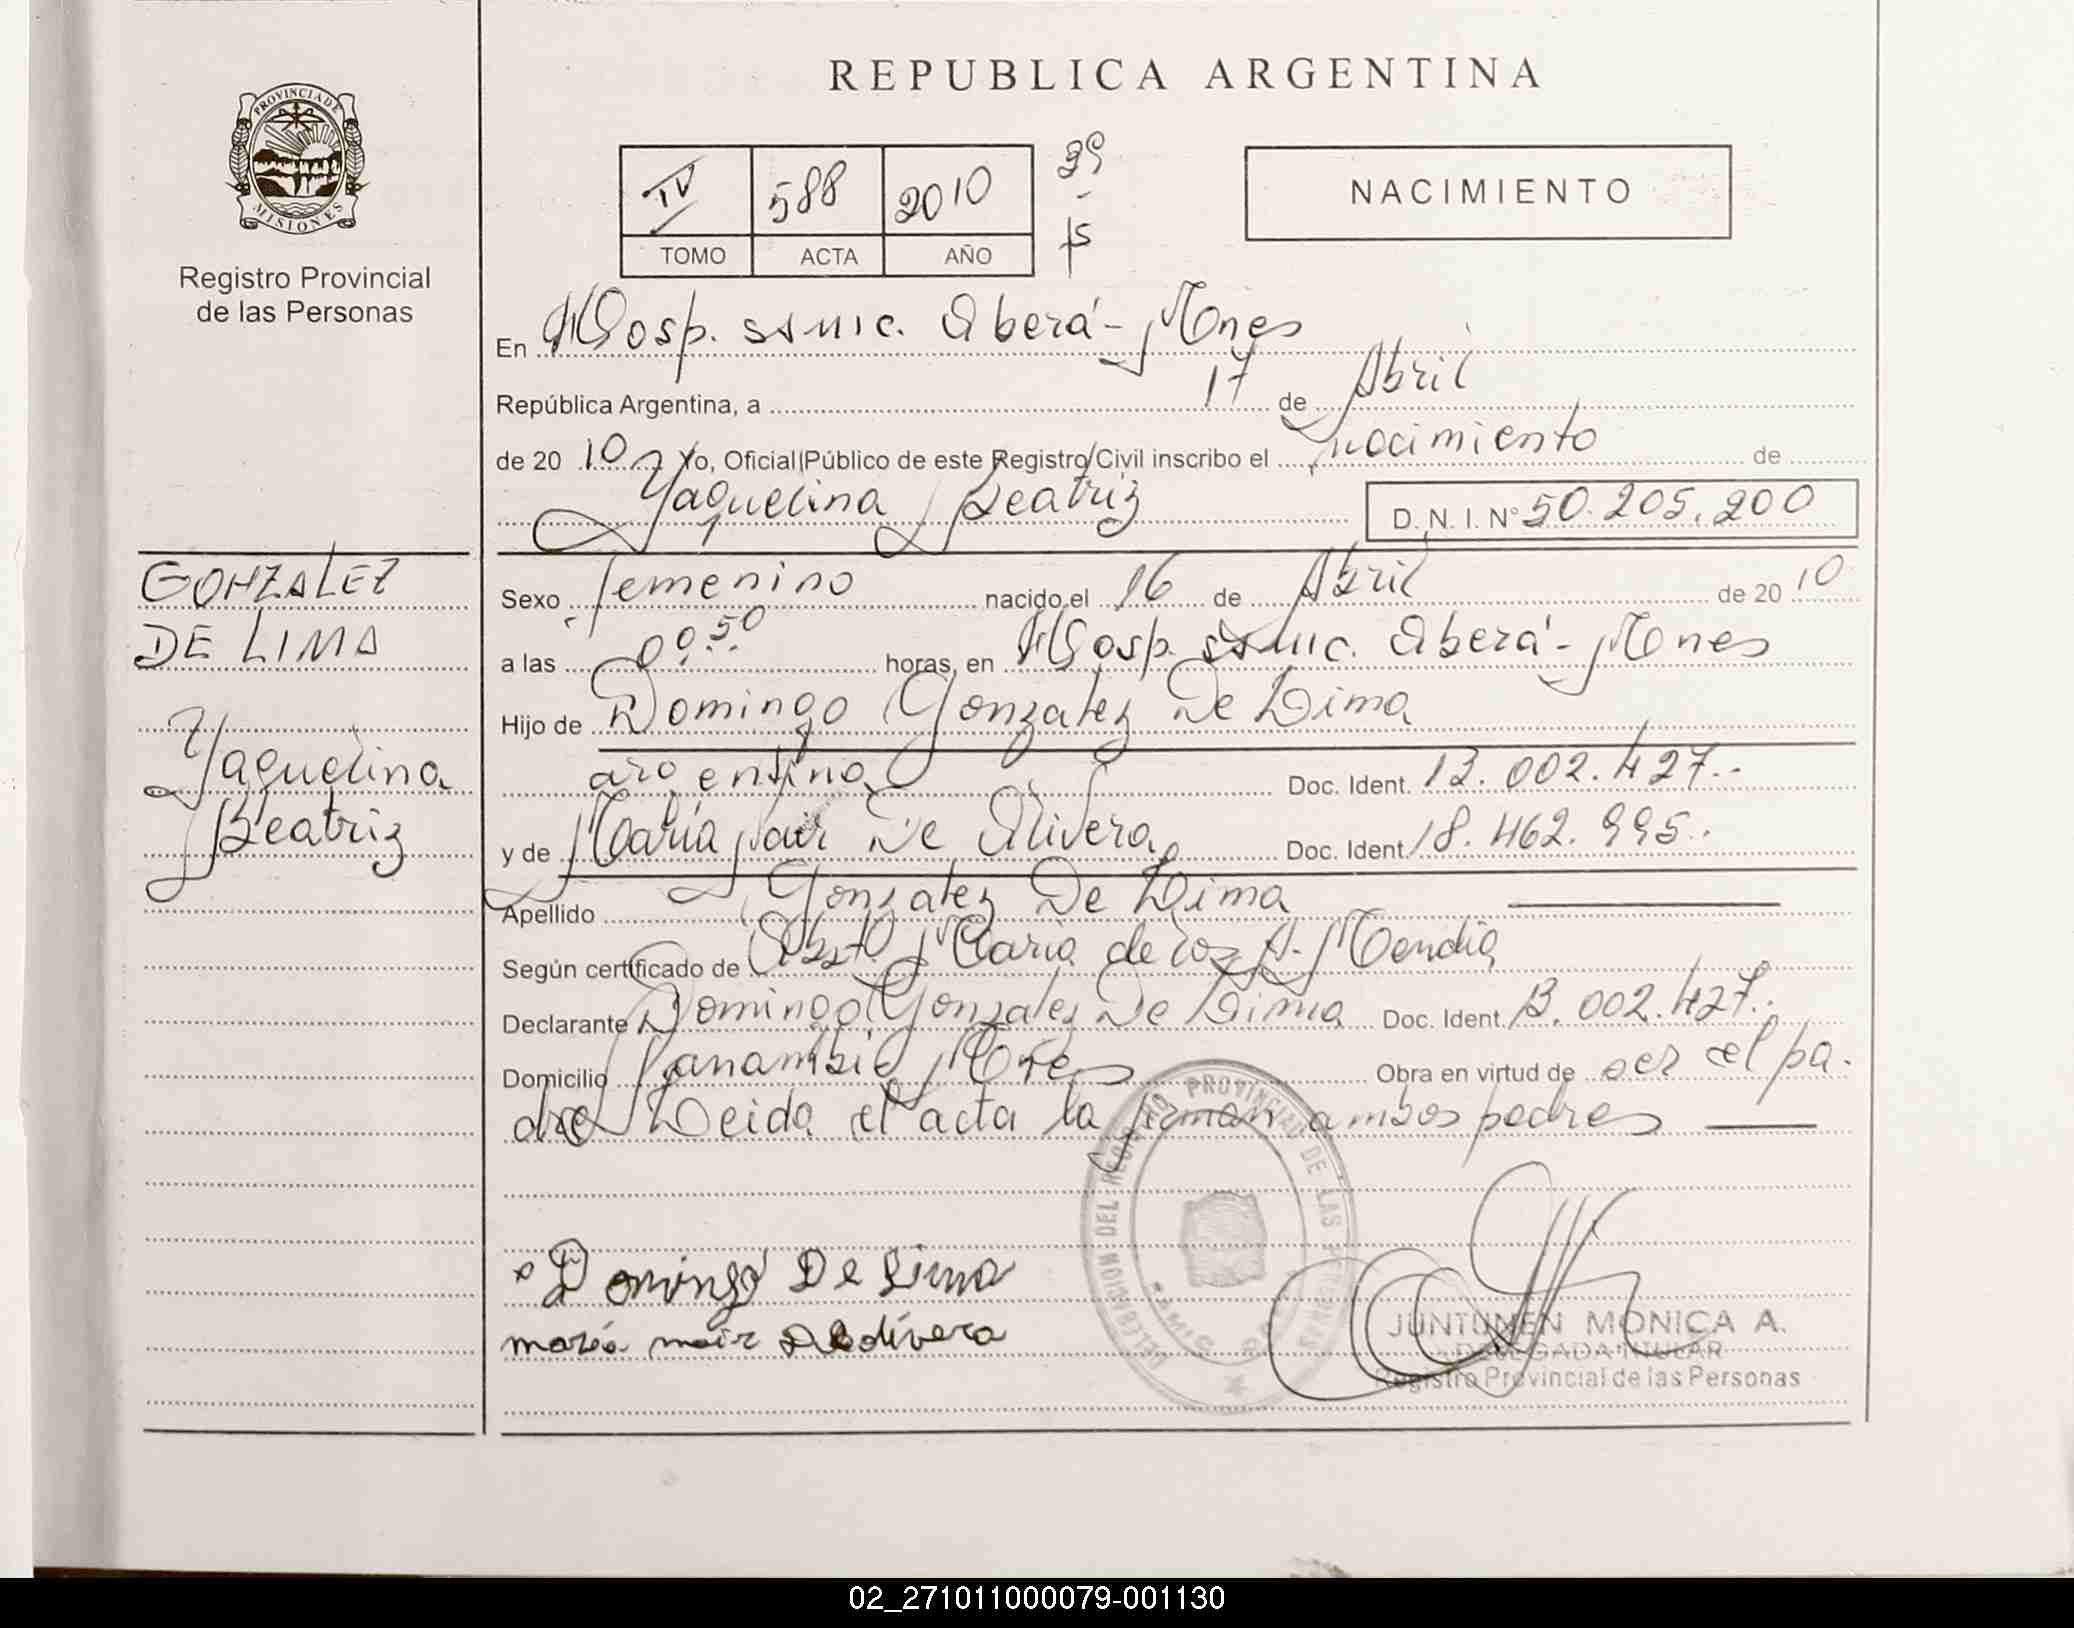 REPUBLICA ARGENTINA
PROVINCIA DE
MISIONES
Registro Provincial
de las Personas
IV 588 2010
TOMO ACTA AÑO
NACIMIENTO
En Hosp. SAMIC. Oberá - Mnes
República Argentina, a 17 de Abril
de 20 10 Yo, Oficial Público de este Registro Civil inscribo el nacimiento de
Yaquelina Beatriz D.N.I. N° 50.205.200
GONZALEZ
DE LIMA
Yaquelina
Beatriz
Sexo femenino nacido el 16 de Abril de 20 10
a las 00.50 horas, en Hosp. SAMIC. Oberá - Mnes
Hijo de Domingo Gonzalez De Lima
argentino Doc. Ident. 13.002.427..
y de María Nair De Olivera Doc. Ident. 18.462.995..
Apellido Gonzalez De Lima
Según certificado de Obst. Maria de los A. Mendia
Declarante Domingo Gonzalez De Lima Doc. Ident. 13.002.427..
Domicilio Panambí Mnes Obra en virtud de ser el pa-
dre Leida el acta la firman ambos padres
Domingo De Lima
maria nair De olivera
DELEGACION DEL REGISTRO PROVINCIAL DE LAS PERSONAS
JUNTUNEN MONICA A.
DELEGADA TITULAR
Registro Provincial de las Personas
02_271011000079-001130